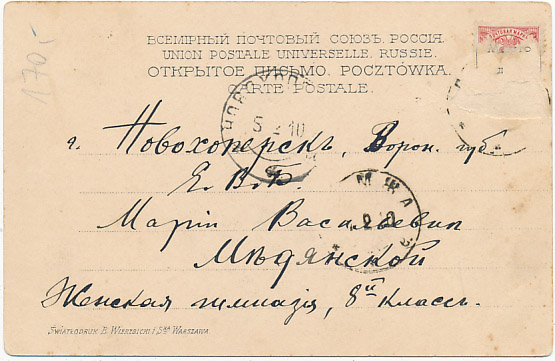 170,-
ВСЕМІРНЫЙ ПОЧТОВЫЙ СОЮЗЪ. РОССІЯ.
UNION POSTALE UNIVERSELLE. RUSSIE.
ОТКРЫТОЕ ПИСЬМО. POCZTÓWKA.
CARTE POSTALE.
г. Новохоперскъ, Ворон. губ.
Е. В. Б.
Маріи Васильевнѣ
Мѣдянской
Женская гимназія, 8й классъ.
ŚWIATŁODRUK B. WIERZBICKI I SKA WARSZAWA